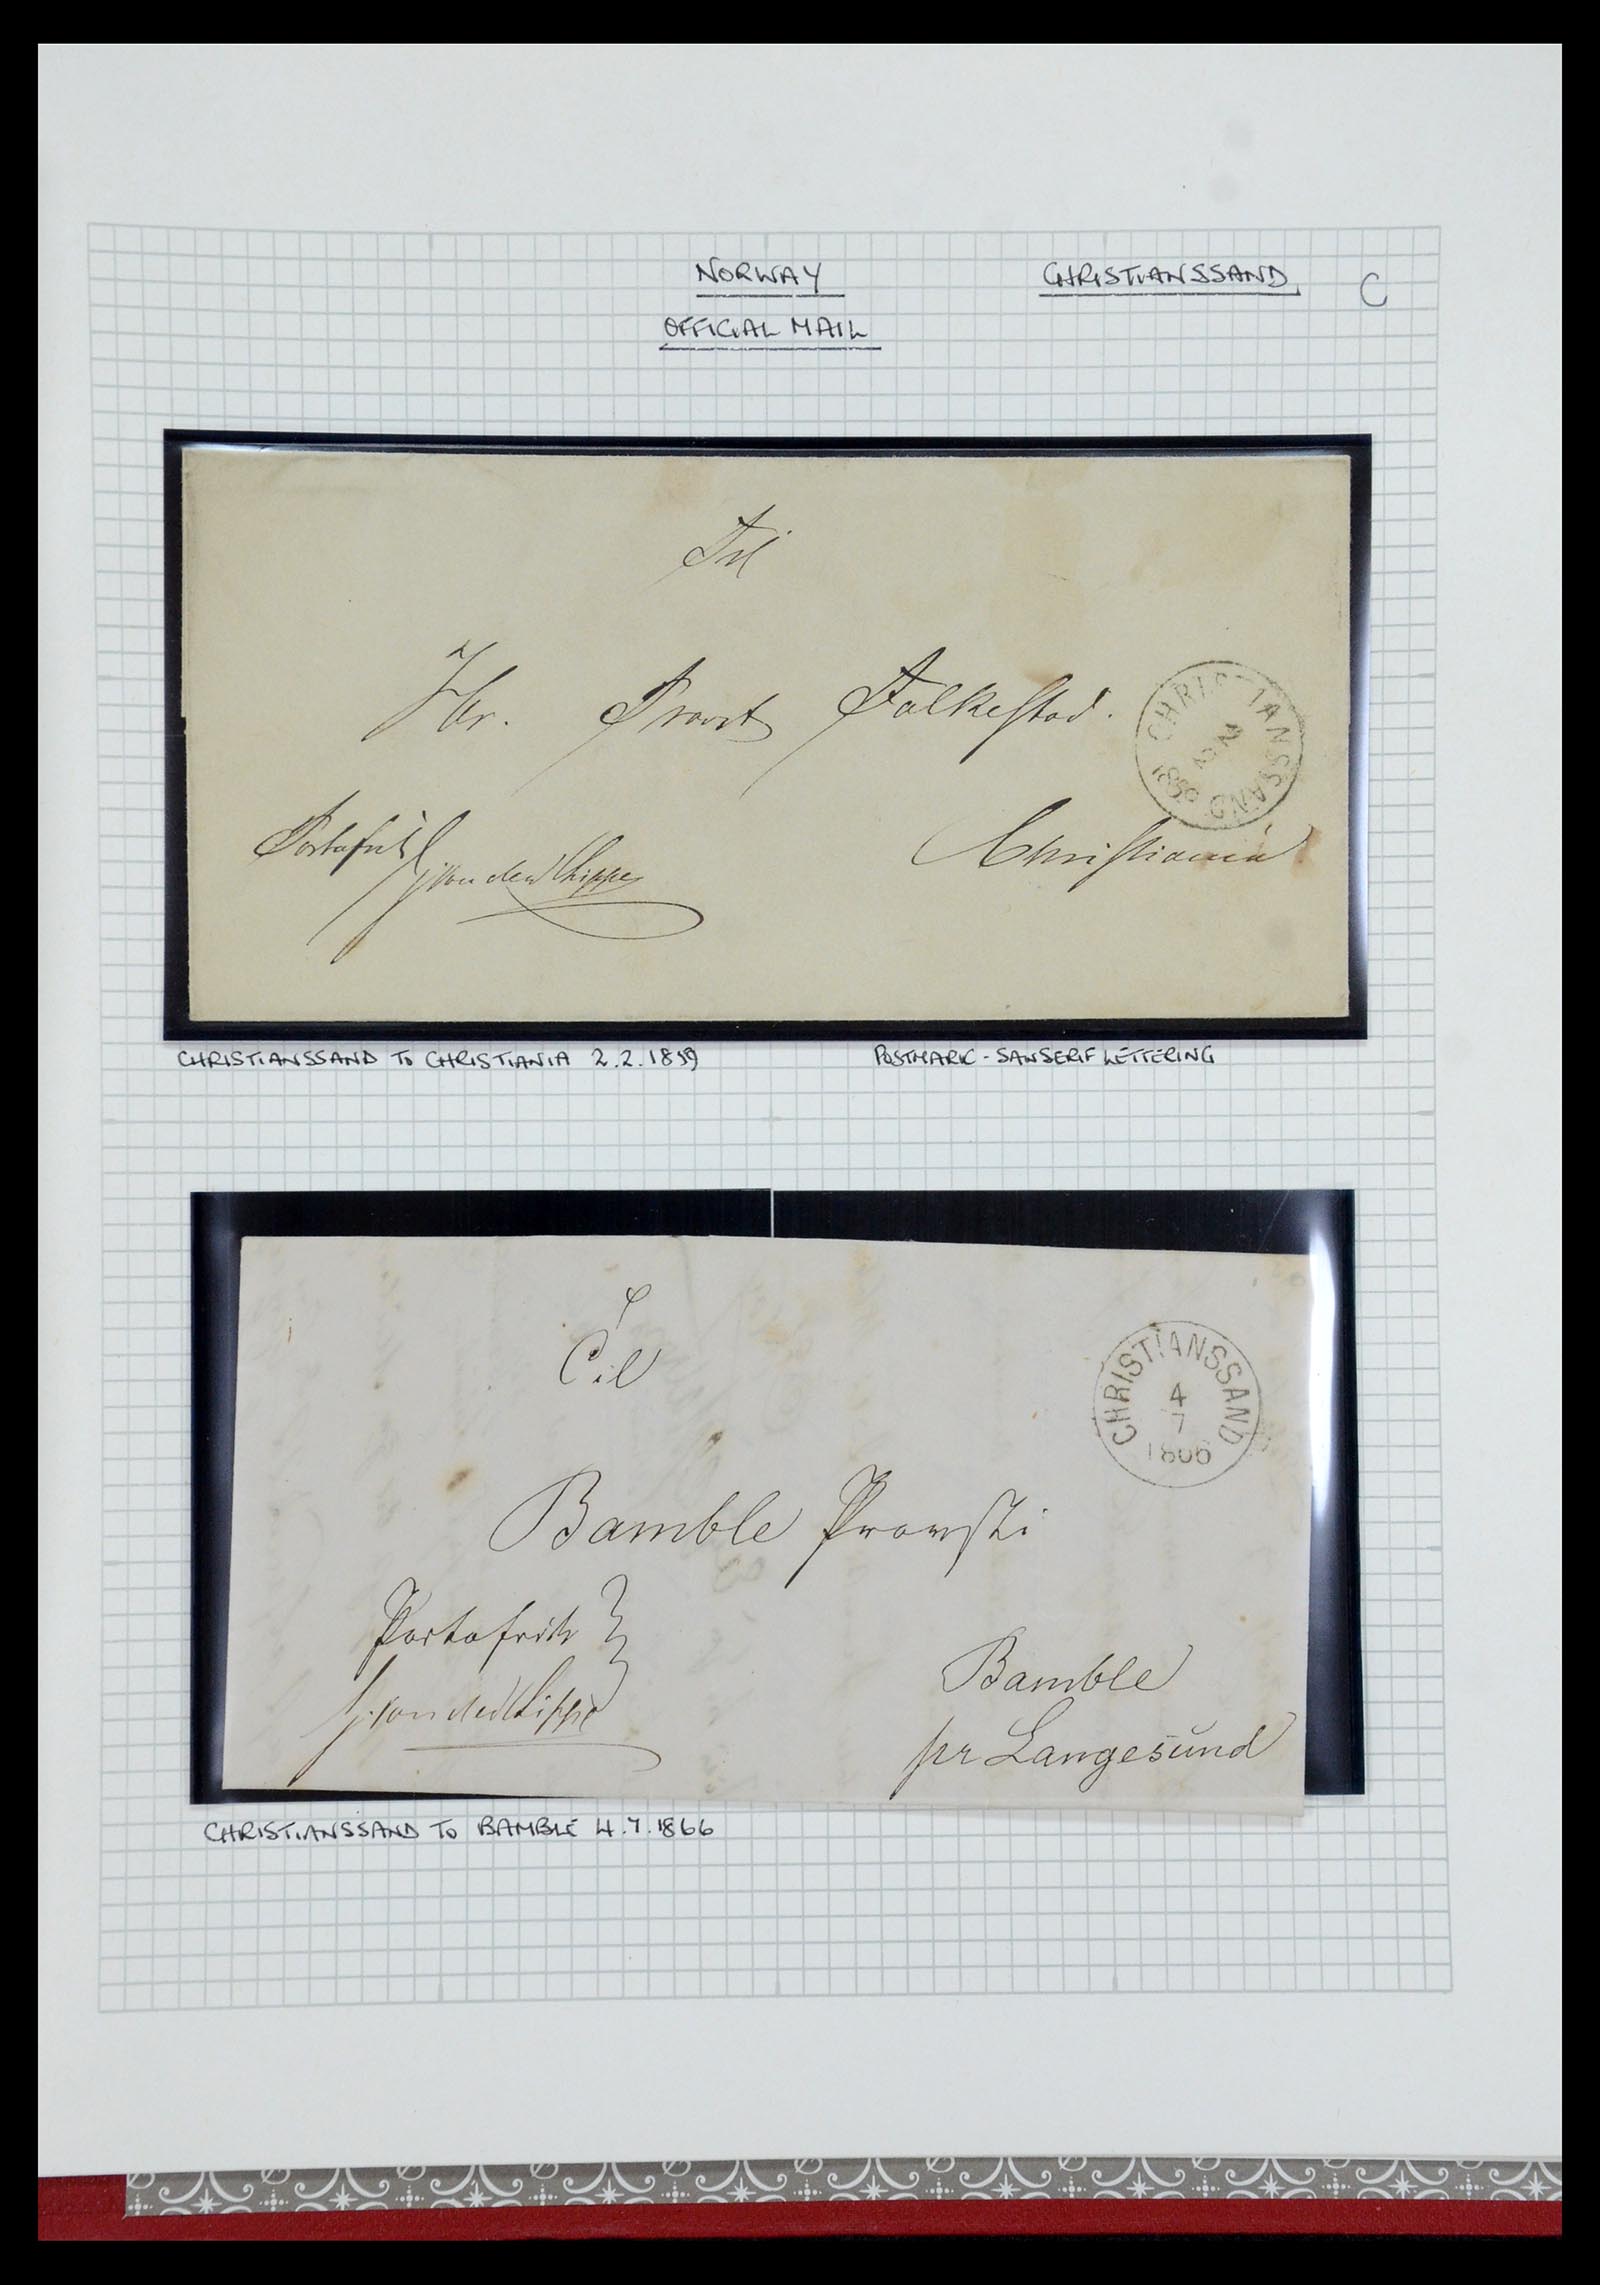 NORWAY
CHRISTIANSSAND
C
OFFICIAL MAIL
Til
Hr. Provst Falkestad.
CHRISTIANSSAND
2
2
Portofrit
J. von der Lippe
Christiania
CHRISTIANSSAND TO CHRISTIANIA 2.2.1859
POSTMARK - SANSERIF LETTERING
Til
CHRISTIANSSAND
4
7
1866
Bamble Provsti
Portofrit
J. von der Lippe
Bamble
pr Langesund
CHRISTIANSSAND TO BAMBLE 4.7.1866